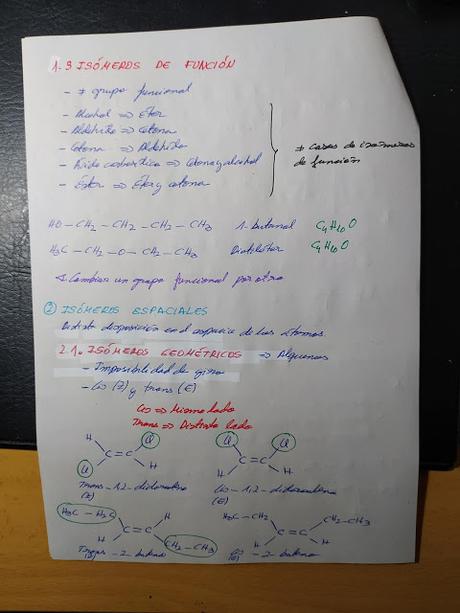 1.3 ISÓMEROS DE FUNCIÓN
- ≠ grupo funcional
- Alcohol => Éter
- Aldehído => Cetona
- Cetona => Aldehído
- Ácido carboxílico => Cetona y alcohol
- Ester => Éter y cetona
≠ casos de isómeros
de función
HO-CH2-CH2-CH2-CH3 1-butanol C4H10O
H3C-CH2-O-CH2-CH3 Dietiléter C4H10O
Cambiar un grupo funcional por otro
② ISÓMEROS ESPACIALES
Distinta disposición en el espacio de los átomos.
2.1. ISÓMEROS GEOMÉTRICOS => Alquenos
- Imposibilidad de giro
- Cis (Z) y trans (E)
Cis => Mismo lado
Trans => Distinto lado
H Cl Cl Cl
C=C C=C
Cl H H H
Trans-1,2-dicloroeteno Cis-1,2-dicloroeteno
(E)
H3C-H2C H H3C-CH2 CH2-CH3
C=C C=C
H CH2-CH3 H H
Trans -2-buteno Cis -2-buteno